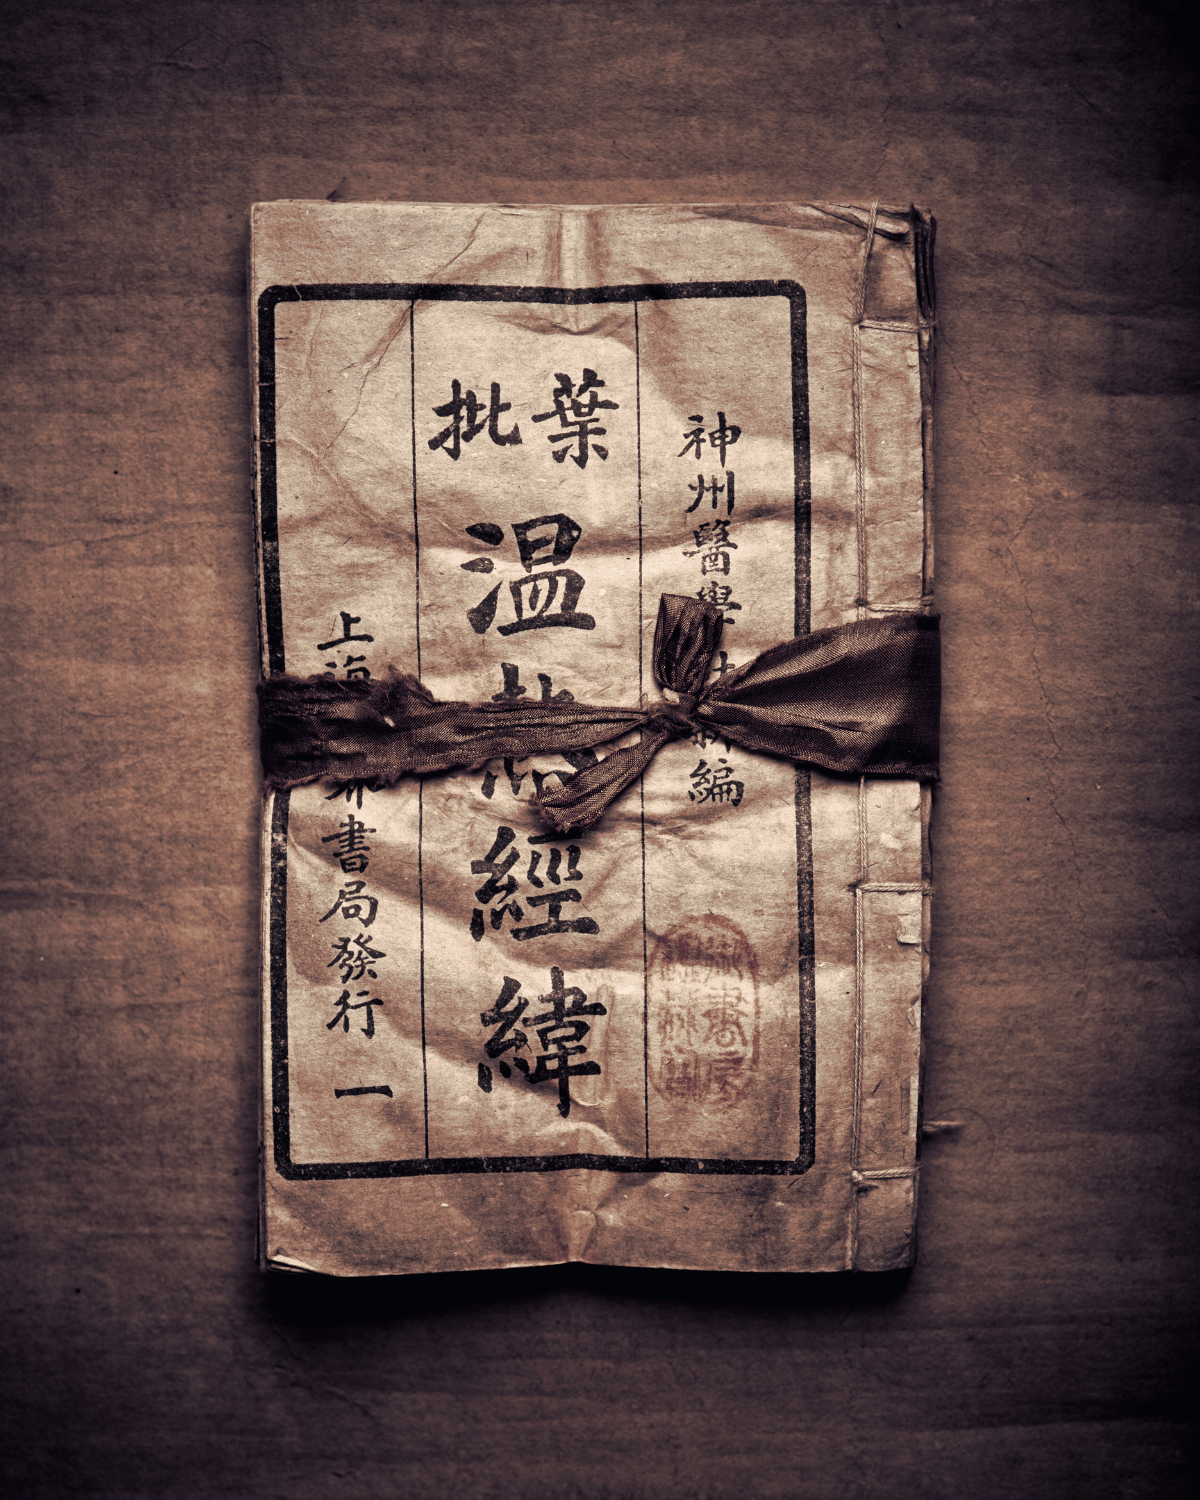 神州醫學
新編
葉批
温熱經緯
上海
書局發行 一
書房